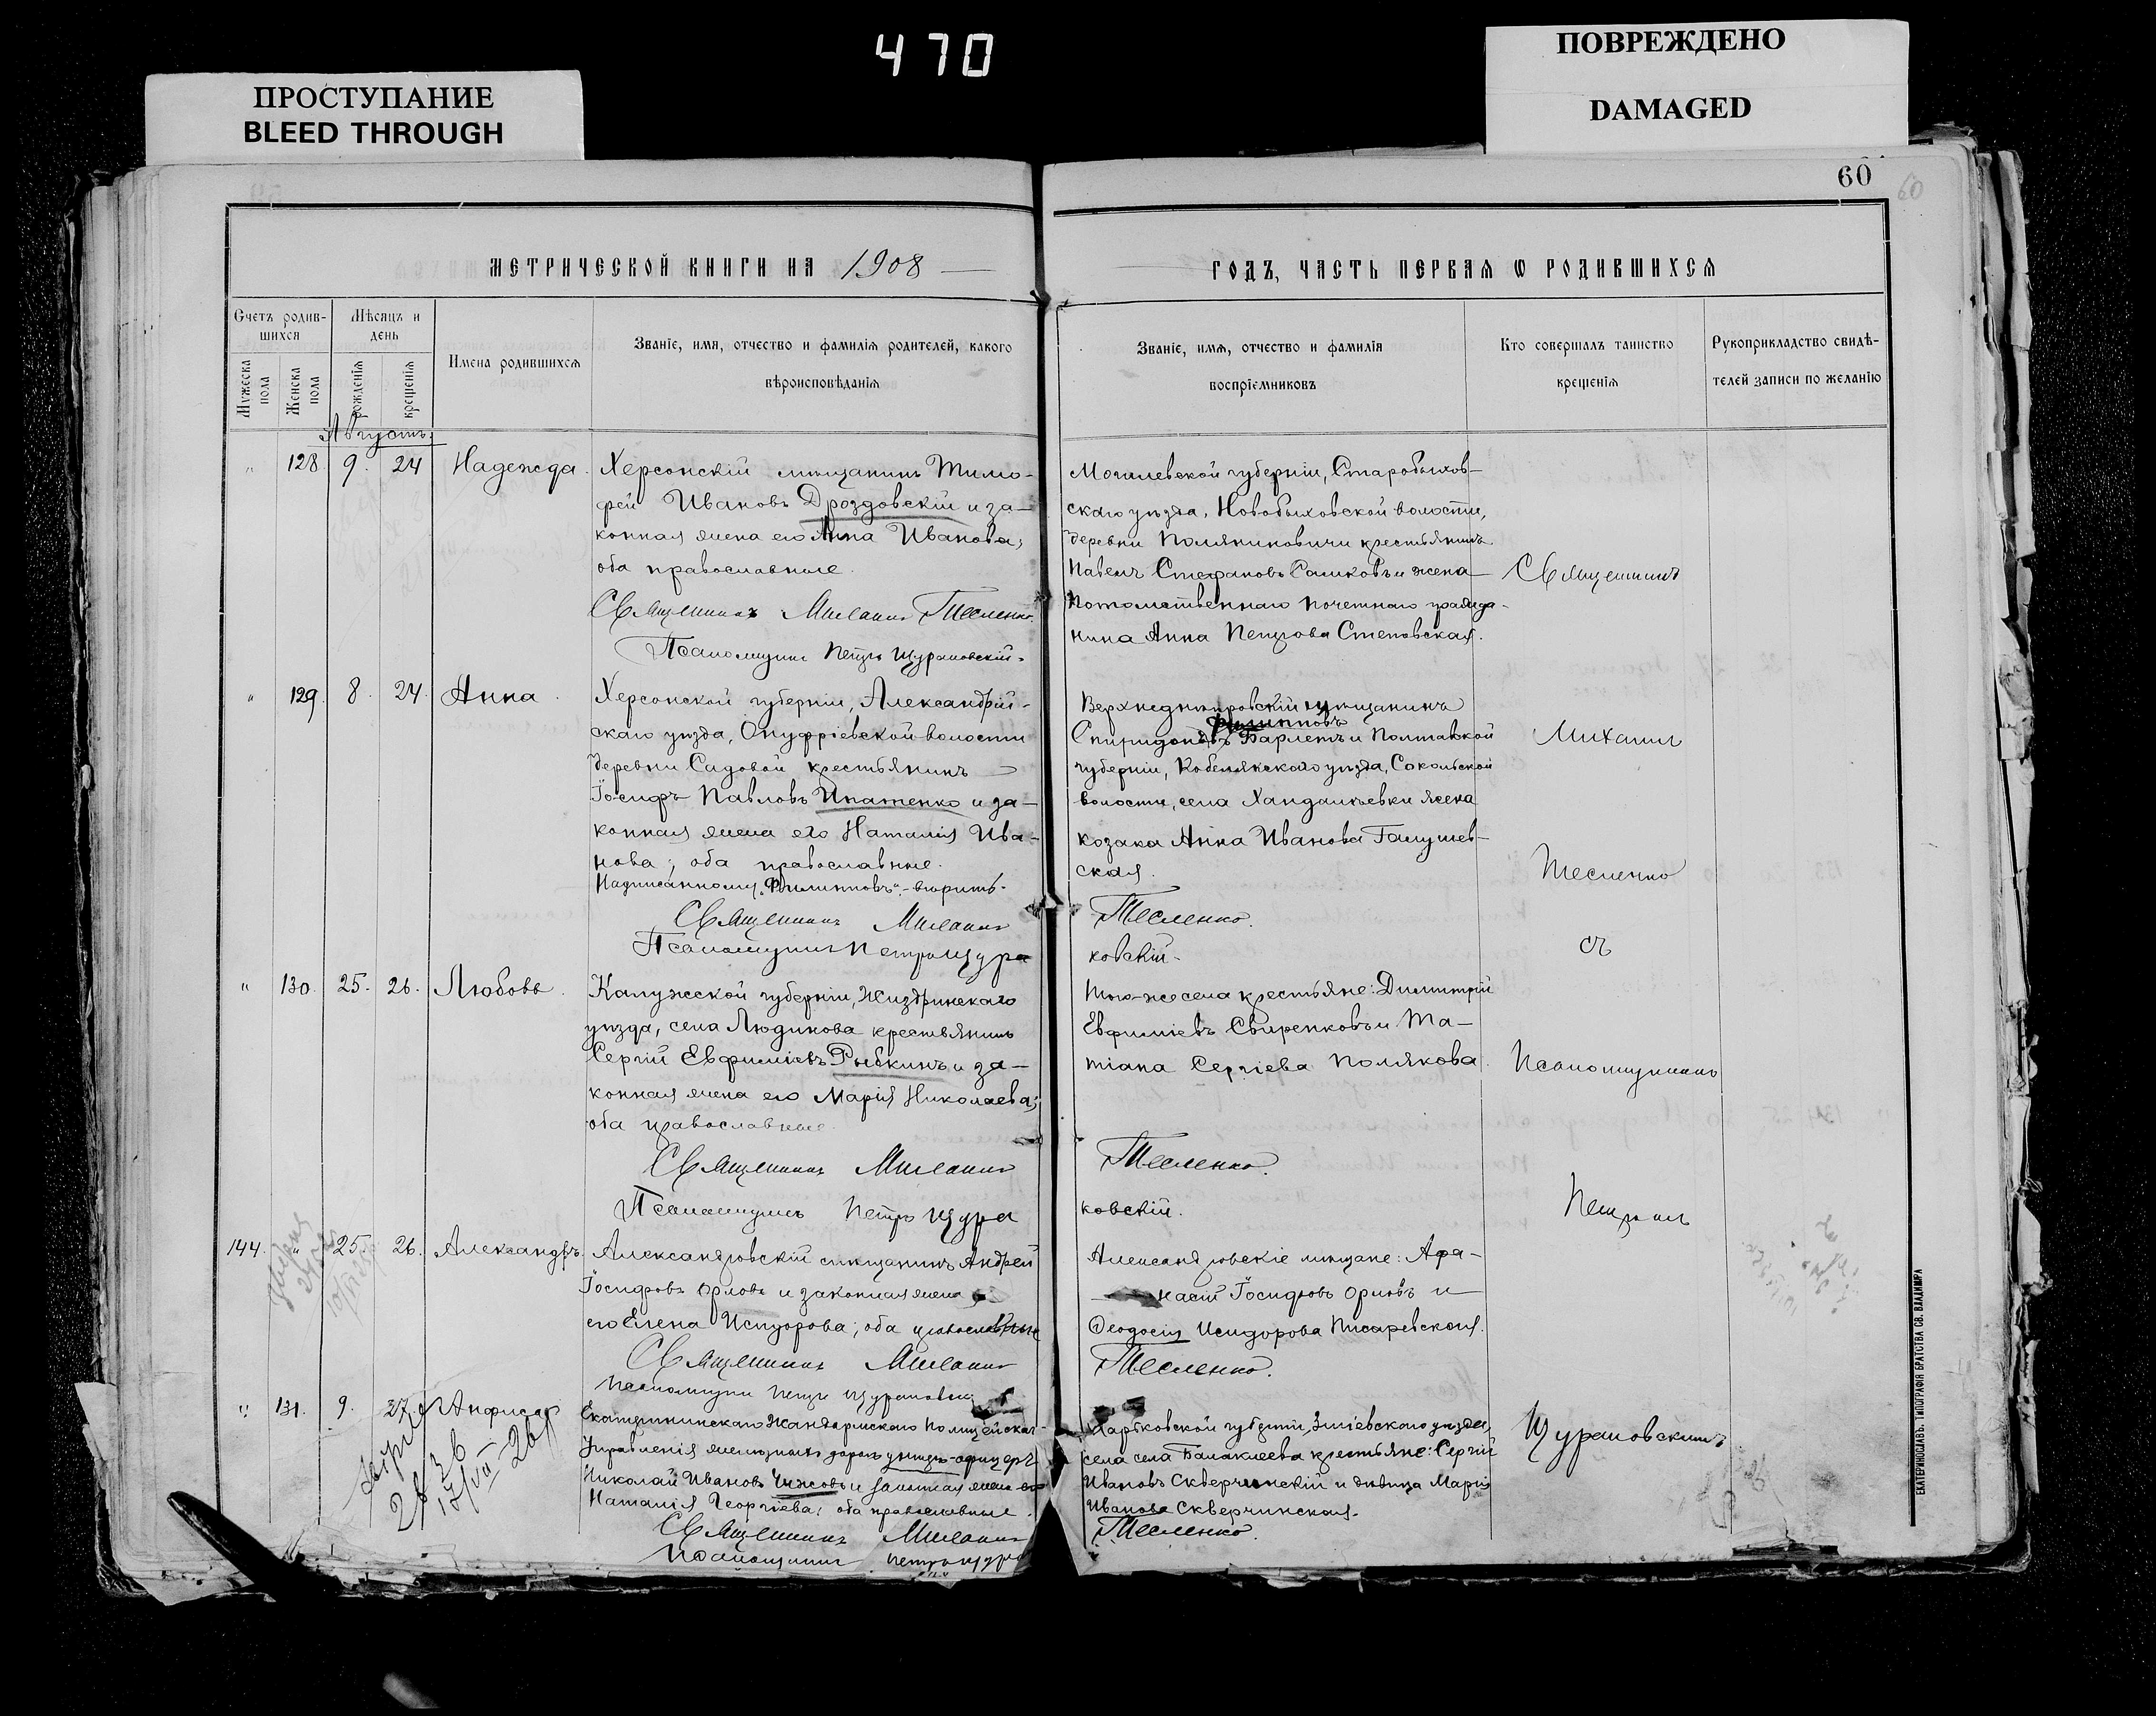 470
ПРОСТУПАНИЕ
BLEED THROUGH
ПОВРЕЖДЕНО
DAMAGED
60
60
МЕТРИЧЕСКОЙ КНИГИ НА 1908
Счетъ родив-
шихся
Мѣсяцъ и
день
Мужеска
пола
Женска
пола
рожденія
крещенія
Имена родившихся
Званіе, имя, отчество и фамилія родителей, какого
вѣроисповѣданія
Августъ.
" 128 9. 24 Надежда.
Херсонскій мѣщанинъ Тимо-
фей Ивановъ Дроздовскій и за-
конная жена его Анна Иванова;
оба православные.
Священникъ Михаилъ Тесленко.
Псаломщикъ Петръ Щурановскій.
" 129. 8. 24. Анна.
Херсонской губерніи, Александрій-
скаго уѣзда, Онуфріевской волости
деревни Садовой крестьянинъ
Іосифъ Павловъ Ипатенко и за-
конная жена его Наталія Ива-
нова; оба православные.
Надписанному „Филипповъ" - вѣрить.
Священникъ Михаилъ
Псаломщикъ Петръ Щура
" 130. 25. 26. Любовь.
Калужской губерніи, Жиздринскаго
уѣзда, села Людинова крестьянинъ
Сергій Евфиміевъ Рыбкинъ и за-
конная жена его Марія Николаева;
оба православные.
Священникъ Михаилъ
Псаломщикъ Петръ Щура
144. " 25. 26. Александръ.
Александровскій мѣщанинъ Андрей
Іосифовъ Орловъ и законная жена
его Елена Исидорова; оба православные
Священникъ Михаилъ
Псаломщикъ Петръ
" 131. 9. 27. Анфиса
Екатерининскаго Жандармскаго Полицейскаго
Управленія желѣзныхъ дорогъ унтеръ-офицеръ
Николай Ивановъ Чижовъ и законная жена его
Наталія Георгіева; оба православные.
Священникъ Михаилъ
Псаломщикъ Петръ Щура
ГОДЪ, ЧАСТЬ ПЕРВАЯ Ѡ РОДИВШИХСЯ
Званіе, имя, отчество и фамилія
воспріемниковъ
Кто совершалъ таинство
крещенія
Рукоприкладство свидѣ-
телей записи по желанію
Могилевской губерніи, Старобыхов-
скаго уѣзда, Новобыховской волости,
деревни крестьянинъ
Павелъ Стефановъ и жена
Потомственнаго почетнаго гражда-
нина Анна Петрова Степовская.
Верхнеднѣпровскій мѣщанинъ
Филипповъ
Спиридонъ Барлетъ и Полтавской
губерніи, Кобелякскаго уѣзда, Сокольской
волости, села жена
козака Анна Иванова Галушев-
ская.
Тесленко.
ковскій.
Того-же села крестьяне: Димитрій
Евфиміевъ Свиренковъ и Та-
тіана Сергіева Полякова.
Тесленко.
ковскій.
Александровскіе мѣщане: Афа-
насій Іосифовъ Орловъ и
Ѳеодосія Исидорова Писаревская.
Тесленко.
Харьковской губерніи, Зміевскаго уѣзда,
села села Балаклеева крестьяне: Сергій
Ивановъ Скверчинскій и дѣвица Марія
Иванова Скверчинская.
Тесленко.
Священникъ
Михаилъ
Тесленко
съ
Псаломщикомъ
Петромъ
Щурановскимъ
ЕКАТЕРИНОСЛАВЪ. ТИПОГРАФІЯ БРАТСТВА СВ. ВЛАДИМІРА